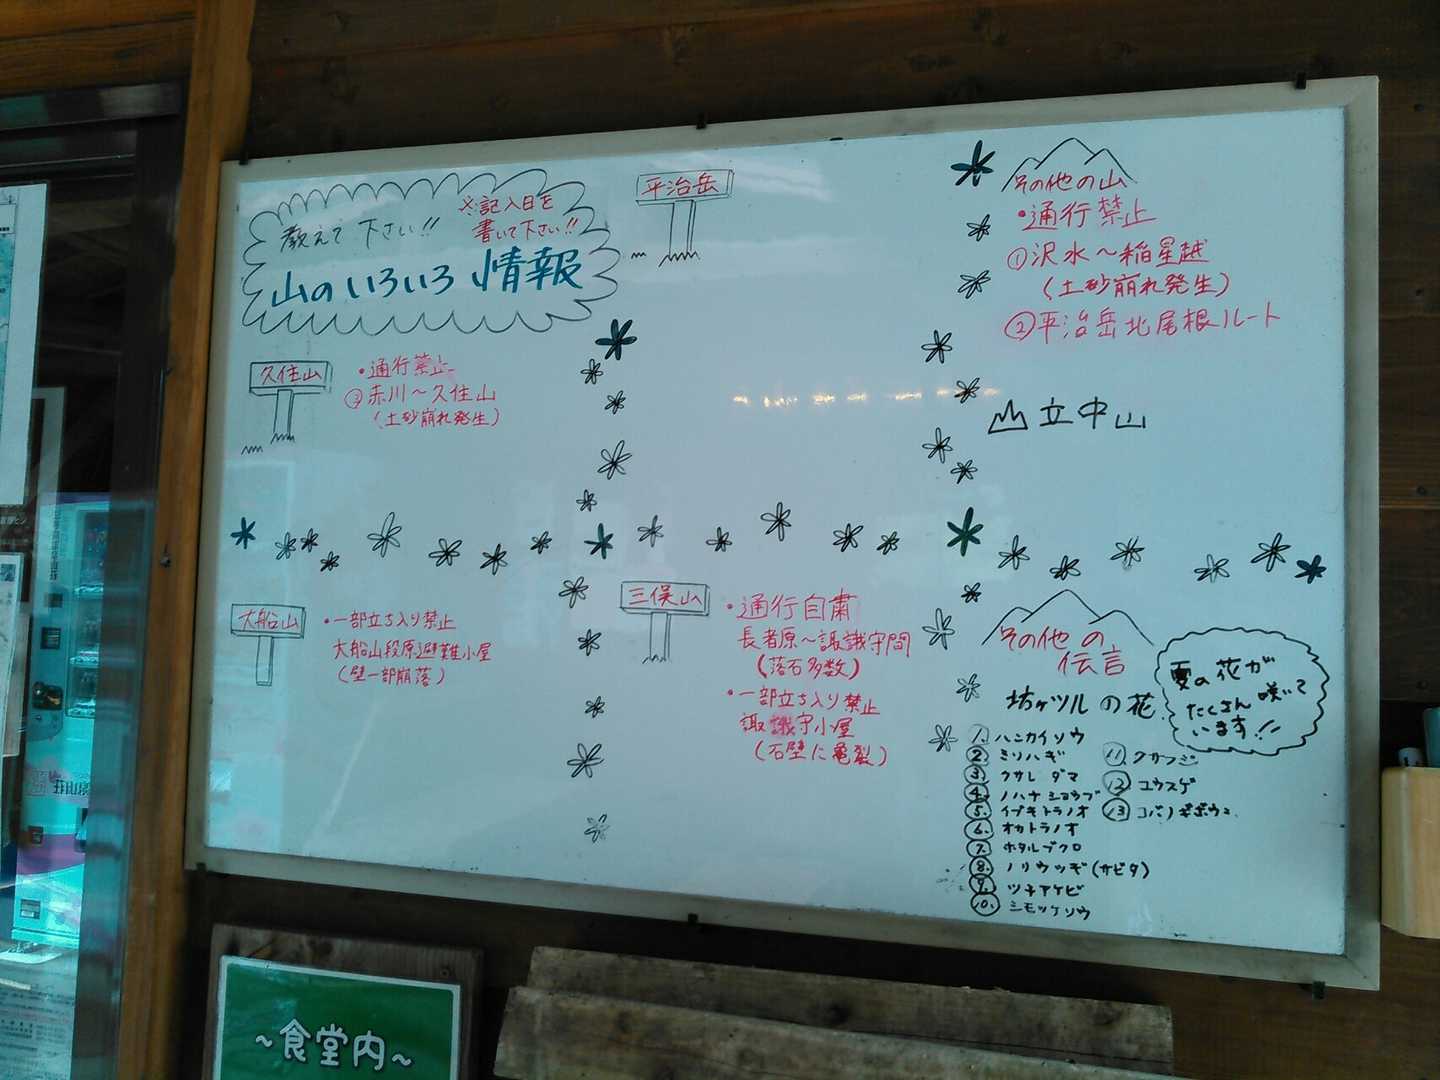 教えて下さい!!
※記入日を
書いて下さい!!
山のいろいろ情報
久住山
・通行禁止
③赤川〜久住山
(土砂崩れ発生)
平治岳
その他の山
・通行禁止
①沢水〜稲星越
(土砂崩れ発生)
②平治岳北尾根ルート
立中山
大船山
・一部立ち入り禁止
大船山段原避難小屋
(壁一部崩落)
三俣山
・通行自粛
長者原〜諏蛾守間
(落石多数)
・一部立ち入り禁止
諏蛾守小屋
(石壁に亀裂)
その他の
伝言
夏の花が
たくさん咲いて
います!!
坊ガツルの花
1. ハンカイソウ
2. ミソハギ
3. クサレダマ
4. ノハナショウブ
5. イブキトラノオ
6. オカトラノオ
7. ホタルブクロ
8. ノリウツギ(サビタ)
9. ツチアケビ
10. シモツケソウ
11. クサフジ
12 ユウスゲ
13 コバノギボウシ
~食堂内~